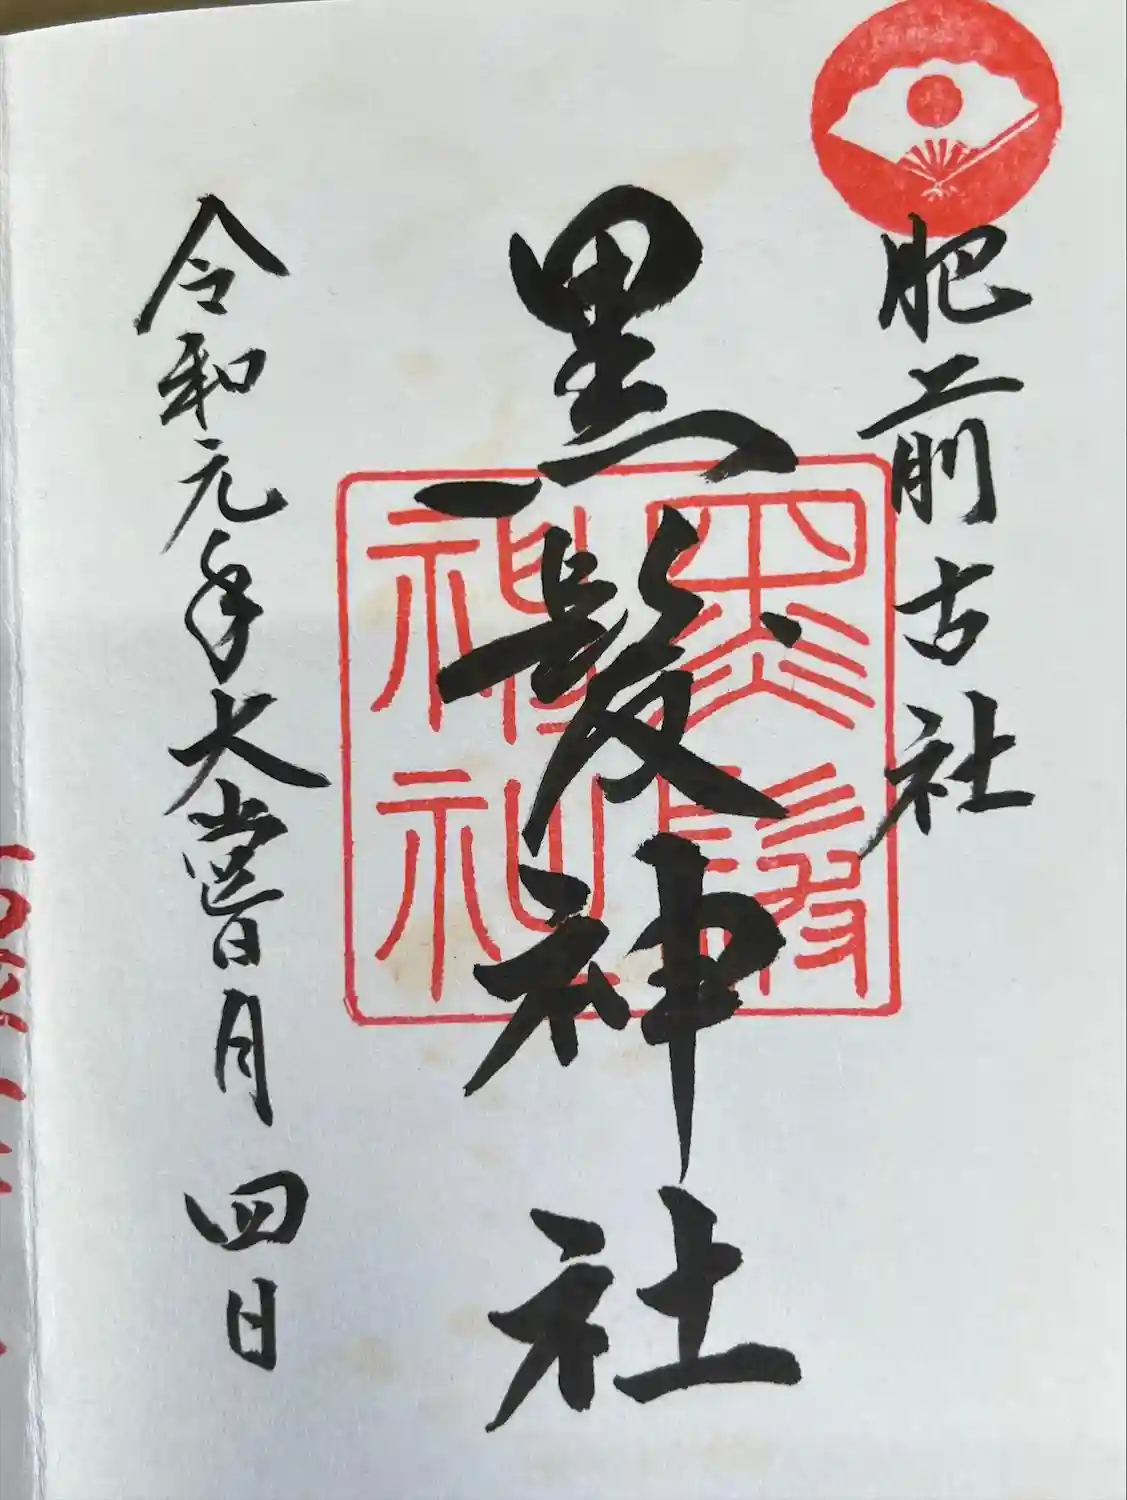 肥前古社
黒髪神社
黒髪神社
令和元年大嘗月四日